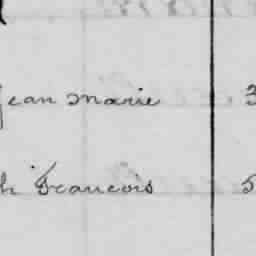 Jean Marie 3
h François 5